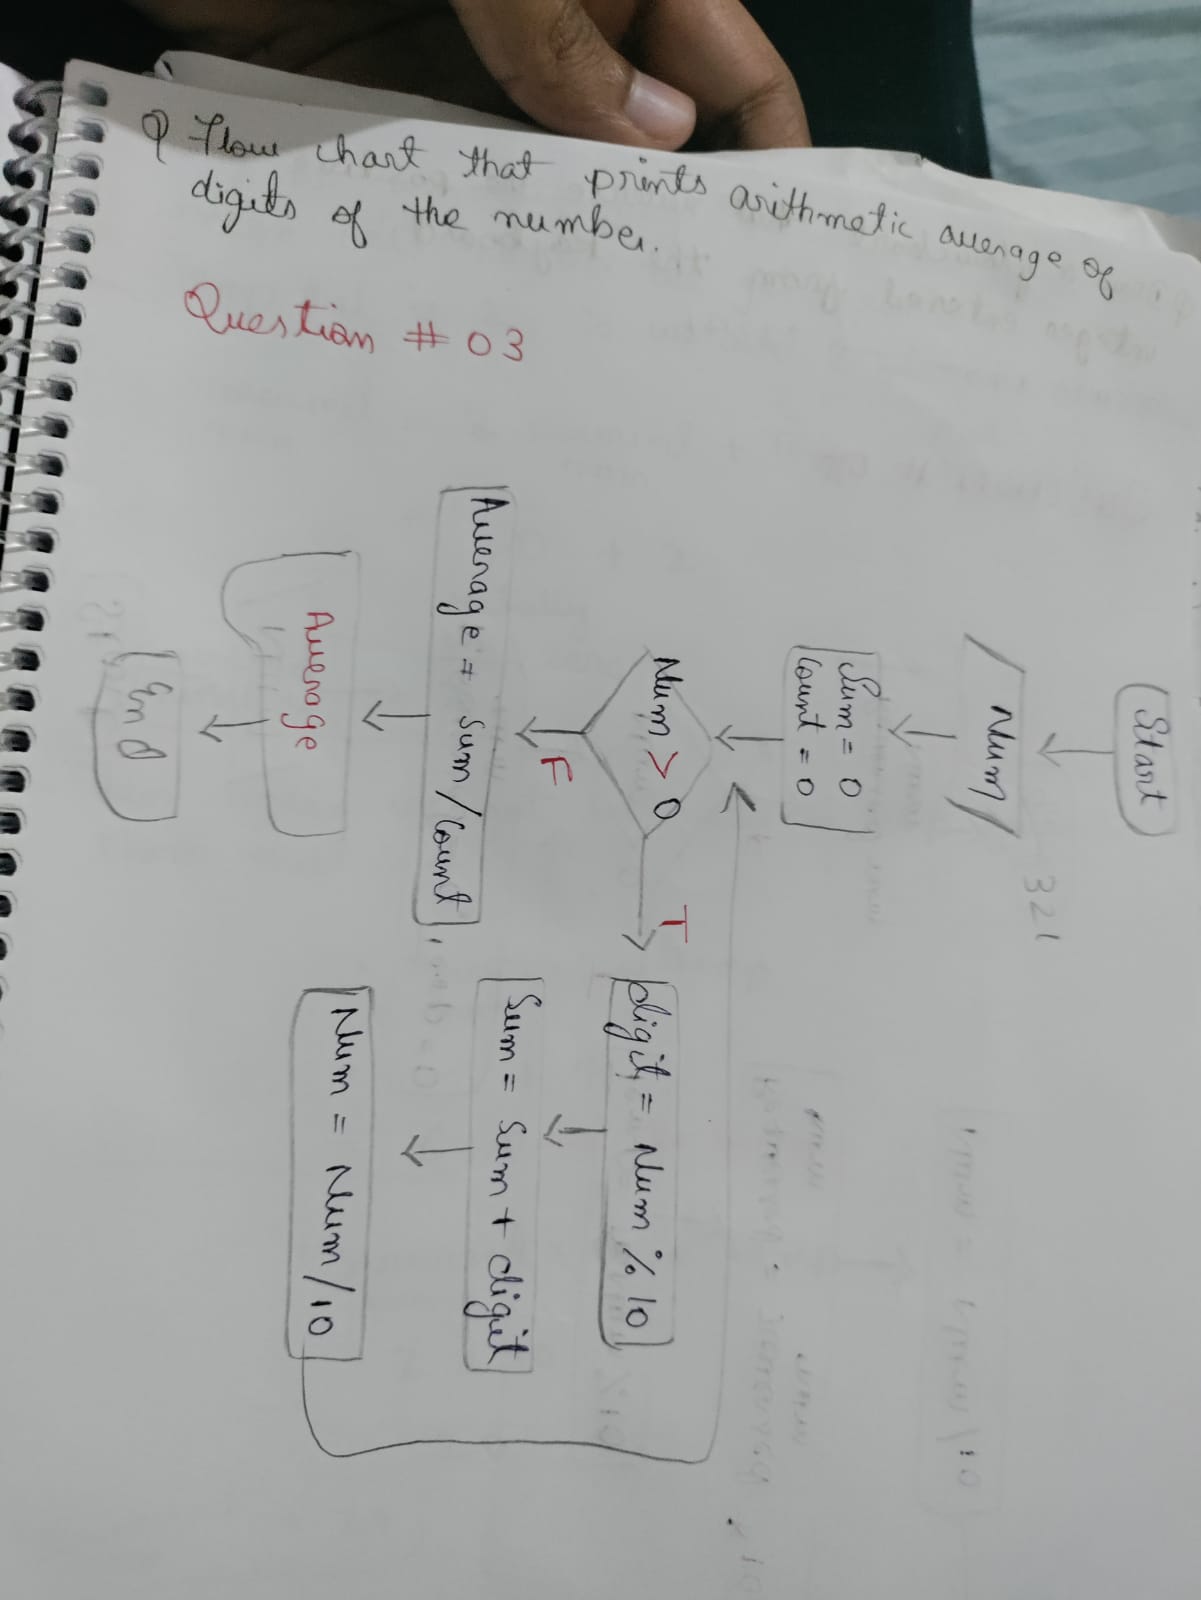 Q Flow chart that prints arithmetic average of
digits of the number.
Question # 03
Start
Num
321
Sum = 0
Count = 0
Num > 0
T
F
digit = Num % 10
Sum = Sum + digit
Num = Num/10
Average = Sum/Count
Average
End